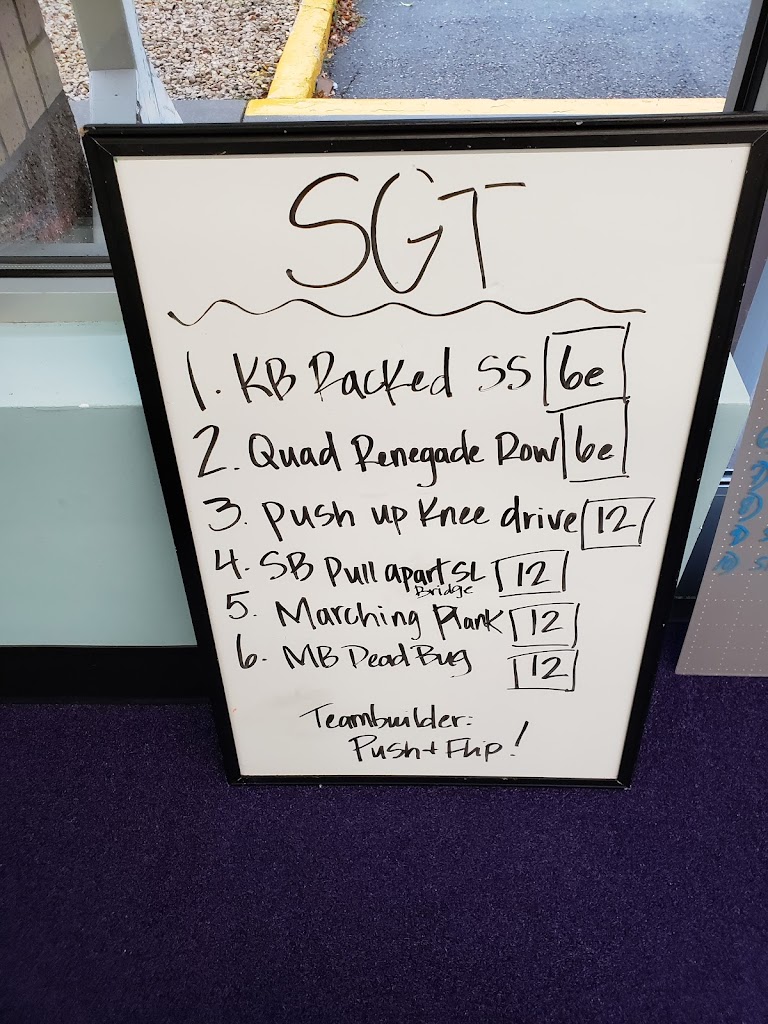 SGT
1. KB Racked SS 6e
2. Quad Renegade Row 6e
3. Push up Knee drive 12
4. SB Pull apart SL Bridge 12
5. Marching Plank 12
6. MB Dead Bug 12
Teambuilder:
Push + Flip!